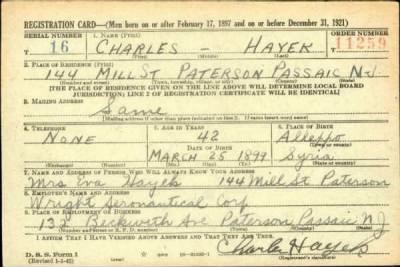 REGISTRATION CARD—(Men born on or after February 17, 1897 and on or before December 31, 1921)
SERIAL NUMBER 1. NAME (Print) ORDER NUMBER
T 16 CHARLES - HAYEK 11259
2. PLACE OF RESIDENCE (Print)
144 MILL ST PATERSON PASSAIC N.J.
(Number and street) (Town, township, village, or city) (County) (State)
[THE PLACE OF RESIDENCE GIVEN ON THE LINE ABOVE WILL DETERMINE LOCAL BOARD
JURISDICTION; LINE 2 OF REGISTRATION CERTIFICATE WILL BE IDENTICAL]
3. MAILING ADDRESS
Same
[Mailing address if other than place indicated on line 2. If same insert word same]
4. TELEPHONE 5. AGE IN YEARS 6. PLACE OF BIRTH
NONE 42 Alleppo
DATE OF BIRTH (Town or county)
MARCH 25 1899 Syria
(Exchange) (Number) (Mo.) (Day) (Yr.) (State or country)
7. NAME AND ADDRESS OF PERSON WHO WILL ALWAYS KNOW YOUR ADDRESS
Mrs Eva Hayek 144 Mill St Paterson
8. EMPLOYER'S NAME AND ADDRESS
Wright Aeronautical Corp
9. PLACE OF EMPLOYMENT OR BUSINESS
132 Beckwith Ave Paterson Passaic N.J
(Number and street or R. F. D. number) (Town) (County) (State)
I AFFIRM THAT I HAVE VERIFIED ABOVE ANSWERS AND THAT THEY ARE TRUE.
D. S. S. Form 1 Charles Hayek
(Revised 1-1-42) (over) (Registrant's signature)